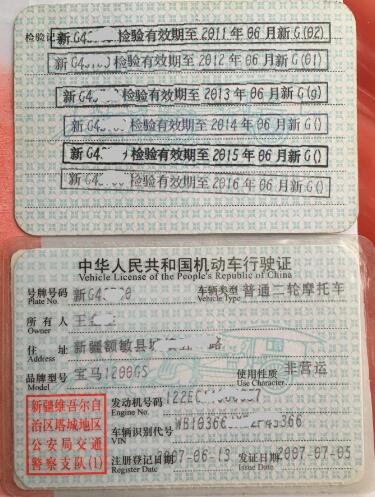 检验记
检验有效期至 2011 年 06 月 新G(02)
检验有效期至 2012 年 06 月 新G(01)
检验有效期至 2013 年 06 月 新G(9)
检验有效期至 2014 年 06 月 新G()
检验有效期至 2015 年 06 月 新G()
检验有效期至 2016 年 06 月 新G()
中华人民共和国机动车行驶证
Vehicle License of the People's Republic of China
号牌号码 车辆类型 普通二轮摩托车
Plate No. Vehicle Type
所有人 王
Owner
住址 新疆额敏县
Address
品牌型号 宝马1200GS 使用性质 非营运
Model Use Character
新疆维吾尔自
治区塔城地区
公安局交通
警察支队(1)
发动机号码
Engine No.
车辆识别代号
VIN
注册登记日期 2007-06-13 发证日期 2007-07-05
Register Date Issue Date